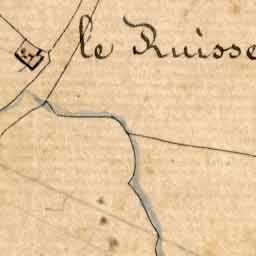 le Ruisse